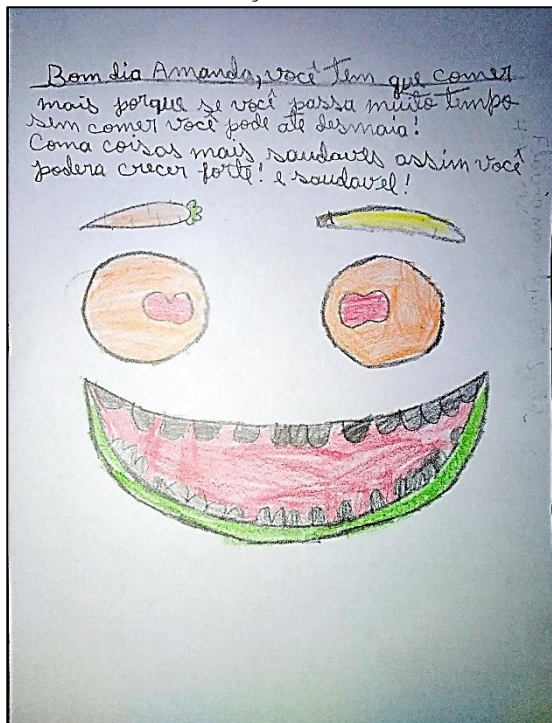 Bom dia Amanda, você tem que comer
mais porque se você passa muito tempo
sem comer você pode até desmaia!
Coma coisas mais saudaves assim você
podera crecer forte! e saudavel!